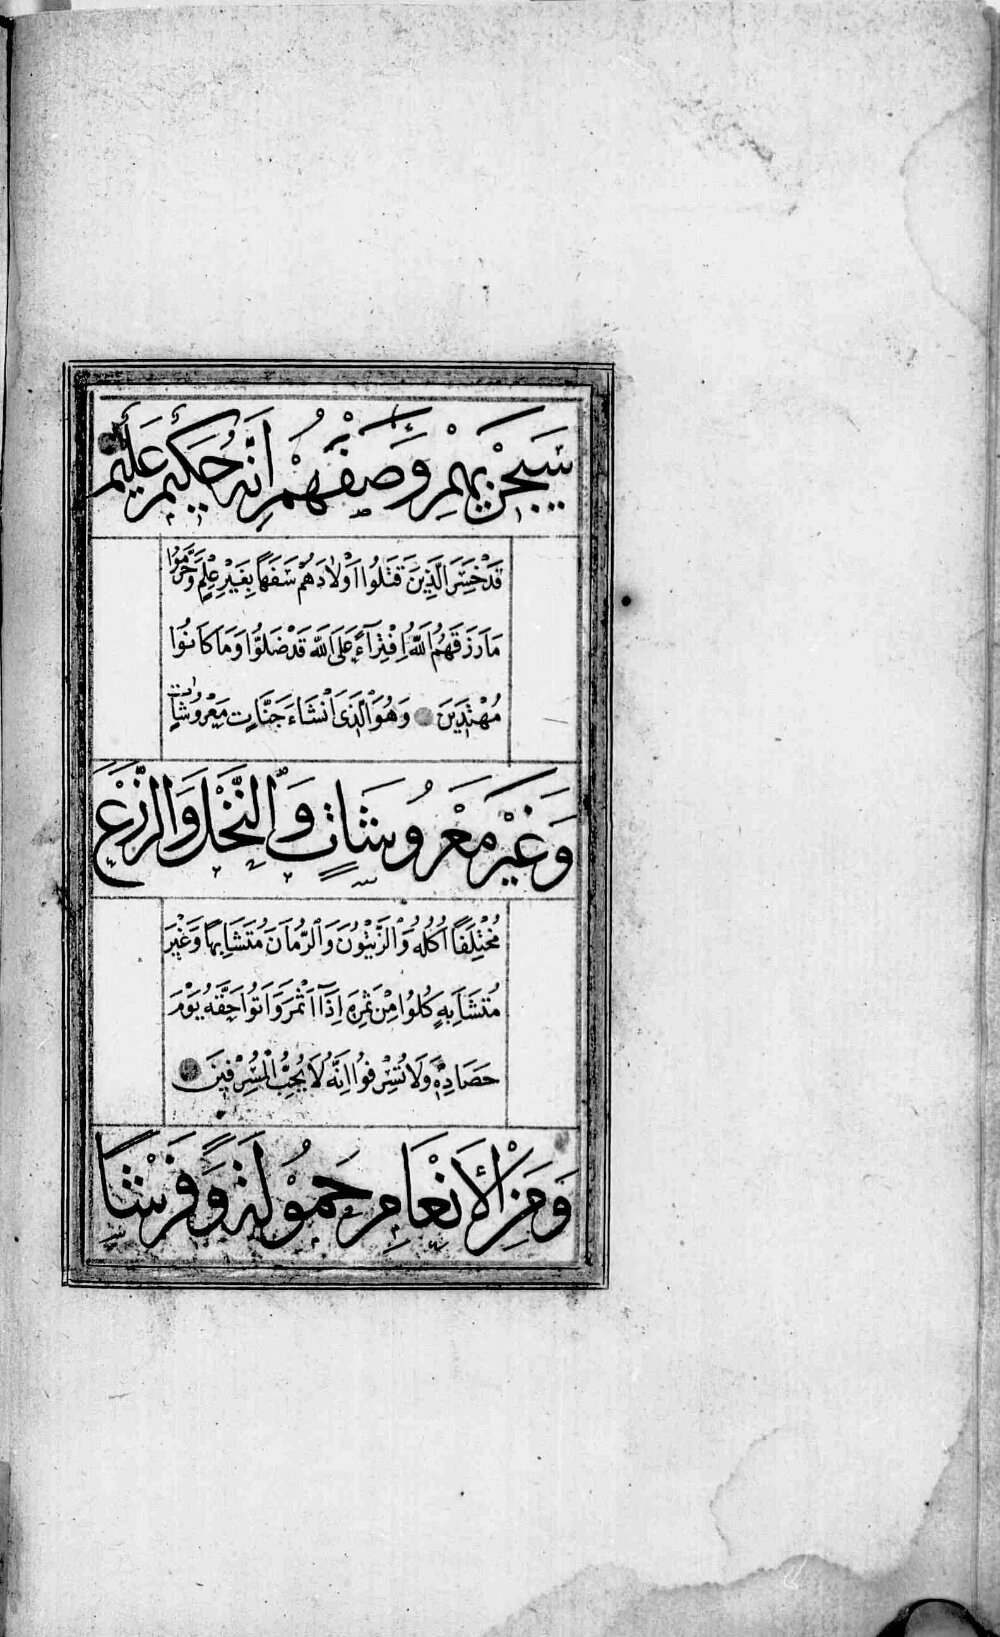 سَيَجْزِيهِمْ وَصْفَهُمْ إِنَّهُ حَكِيمٌ عَلِيمٌ
قَدْ خَسِرَ الَّذِينَ قَتَلُوا اَوْلَادَهُمْ سَفَهًا بِغَيْرِ عِلْمٍ وَحَرَّمُوا
مَا رَزَقَهُمُ اللّٰهُ اِفْتِرَآءً عَلَى اللّٰهِ قَدْ ضَلُّوا وَمَا كَانُوا
مُهْتَدِينَ وَهُوَ الَّذِى اَنْشَاءَ جَنَّاتٍ مَعْرُوشَاتٍ
وَغَيْرَ مَعْرُوشَاتٍ وَالنَّخْلَ وَالزَّرْعَ
مُخْتَلِفًا اُكُلُهُ وَالزَّيْتُونَ وَالرُّمَّانَ مُتَشَابِهًا وَغَيْرَ
مُتَشَابِهٍ كُلُوا مِنْ ثَمَرِهِ اِذَآ اَثْمَرَ وَاٰتُوا حَقَّهُ يَوْمَ
حَصَادِهِ وَلَا تُسْرِفُوا اِنَّهُ لَا يُحِبُّ الْمُسْرِفِينَ
وَمِنَ الْأَنْعَامِ حَمُولَةً وَفَرْشًا